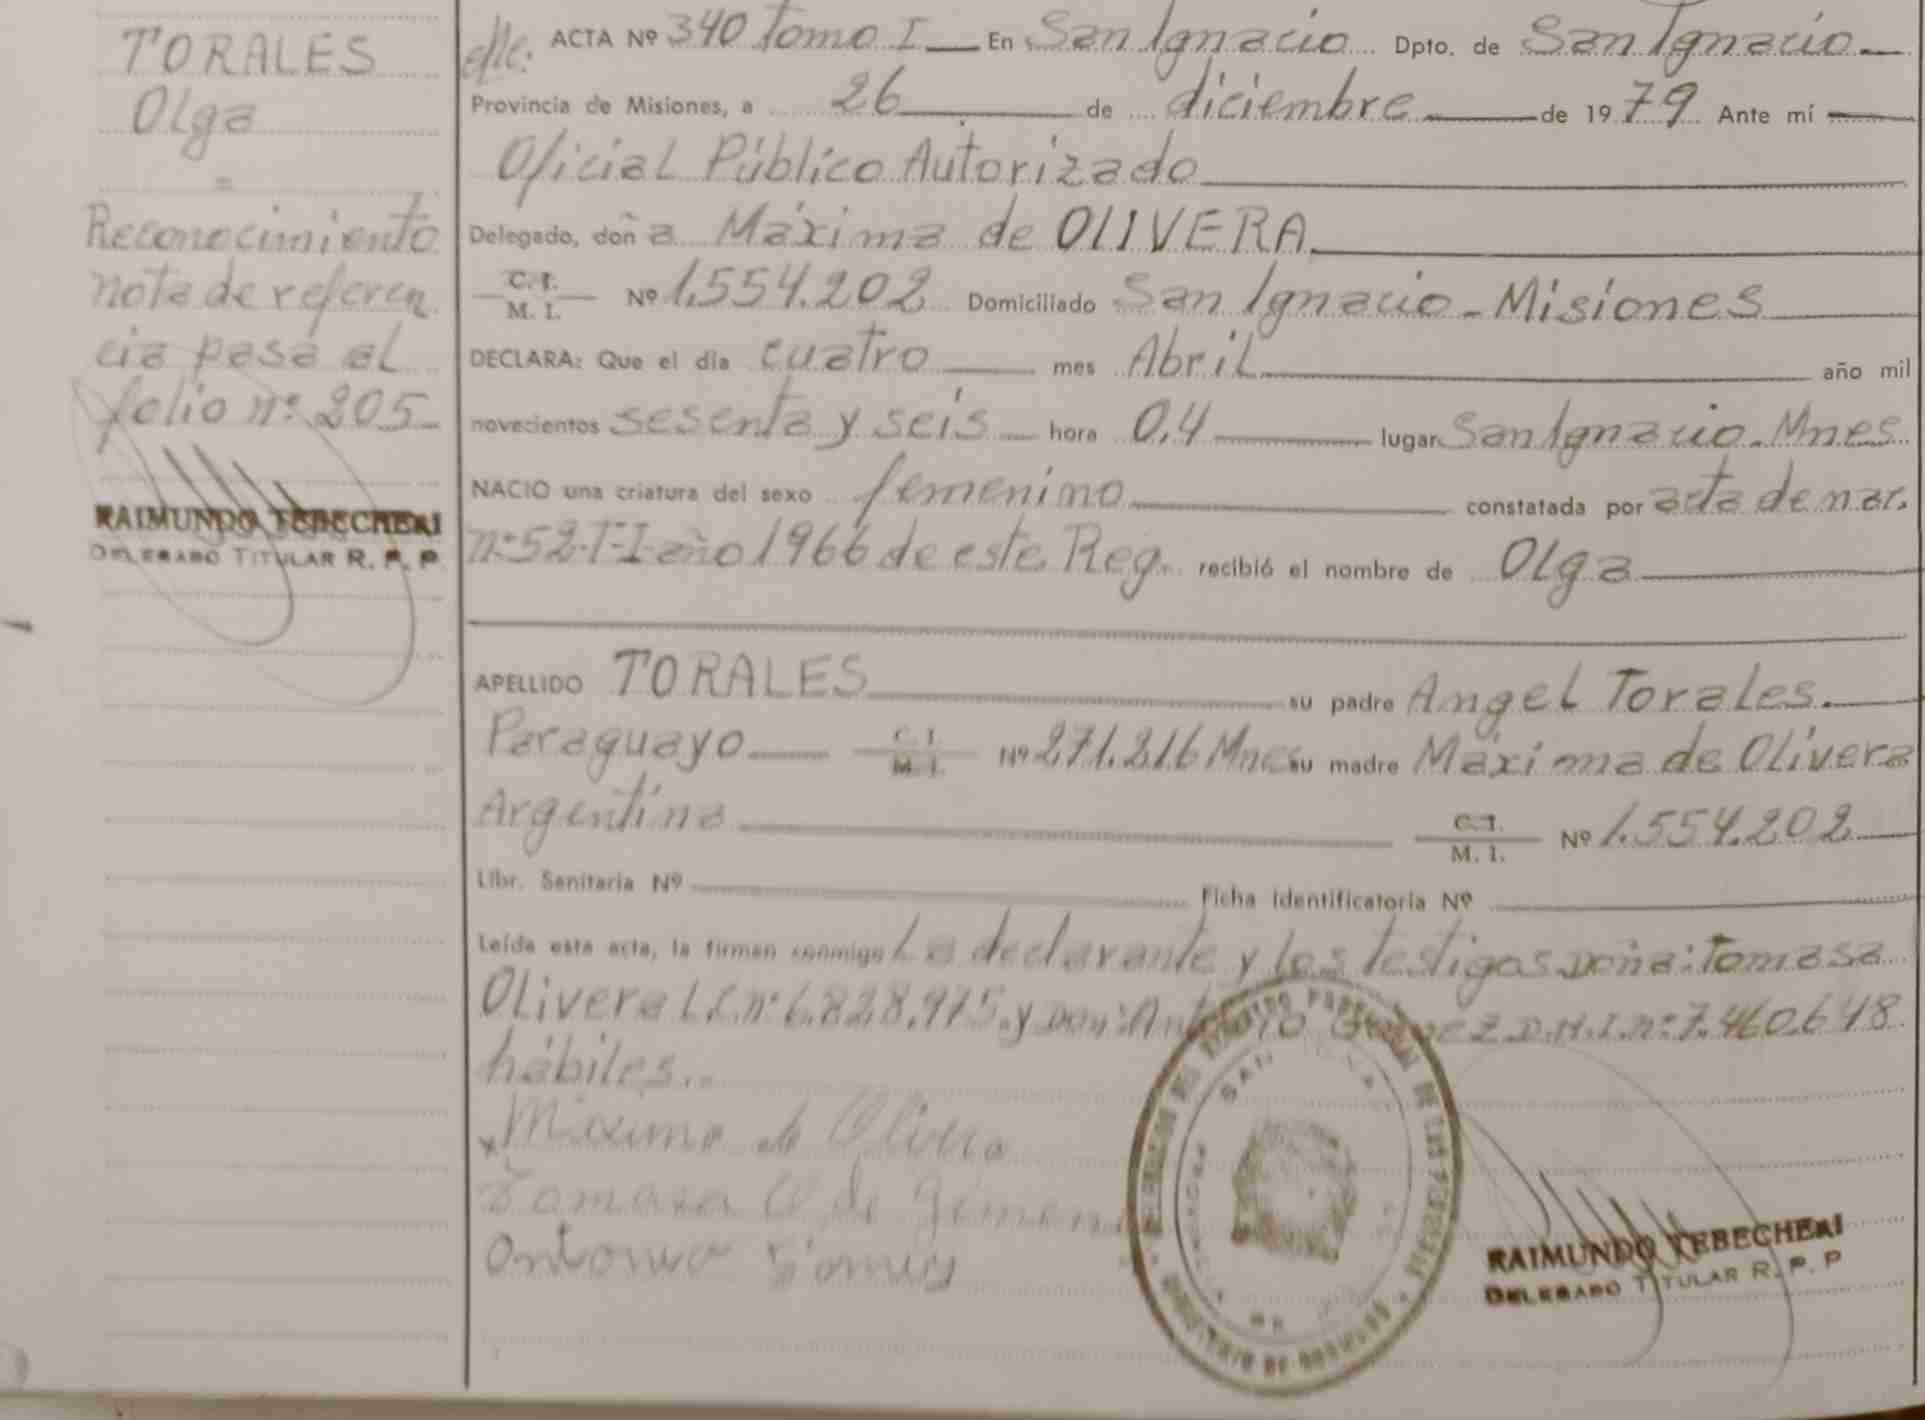 TORALES
Olga
=
Reconocimiento
nota de referen
cia pasa al
folio nº 205-
RAIMUNDO TEBECHERI
DELEGADO TITULAR R. P. P.
ACTA Nº 340 Tomo I En San Ignacio Dpto. de San Ignacio
Provincia de Misiones, a 26 de diciembre de 1979 Ante mí
Oficial Público Autorizado
Delegado, doña Máxima de OLIVERA
C. I. / M. I. Nº 1.554.202 Domiciliado San Ignacio - Misiones
DECLARA: Que el día cuatro mes Abril año mil
novecientos sesenta y seis hora 0,4 lugar San Ignacio - Mnes.
NACIO una criatura del sexo femenino constatada por acta de nac.
nº 52-T-I-año 1966 de este Reg. recibió el nombre de Olga
APELLIDO TORALES su padre Angel Torales.
Paraguayo C. I. / M. I. Nº 271.216 Mnes su madre Máxima de Olivera
Argentina C. I. / M. I. Nº 1.554.202
Libr. Sanitaria Nº Ficha Identificatoria Nº
Leída esta acta, la firman conmigo La declarante y los testigos Doña: Tomasa
Olivera L.C. nº 6.828.975. y Don: Antonio Gomez D.N.I. nº 7.460.648
hábiles..
x Maxima de Olivera
Tomasa O de Gimenez
Antonio Gomez
SAN
RAIMUNDO TEBECHERI
DELEGADO TITULAR R. P. P